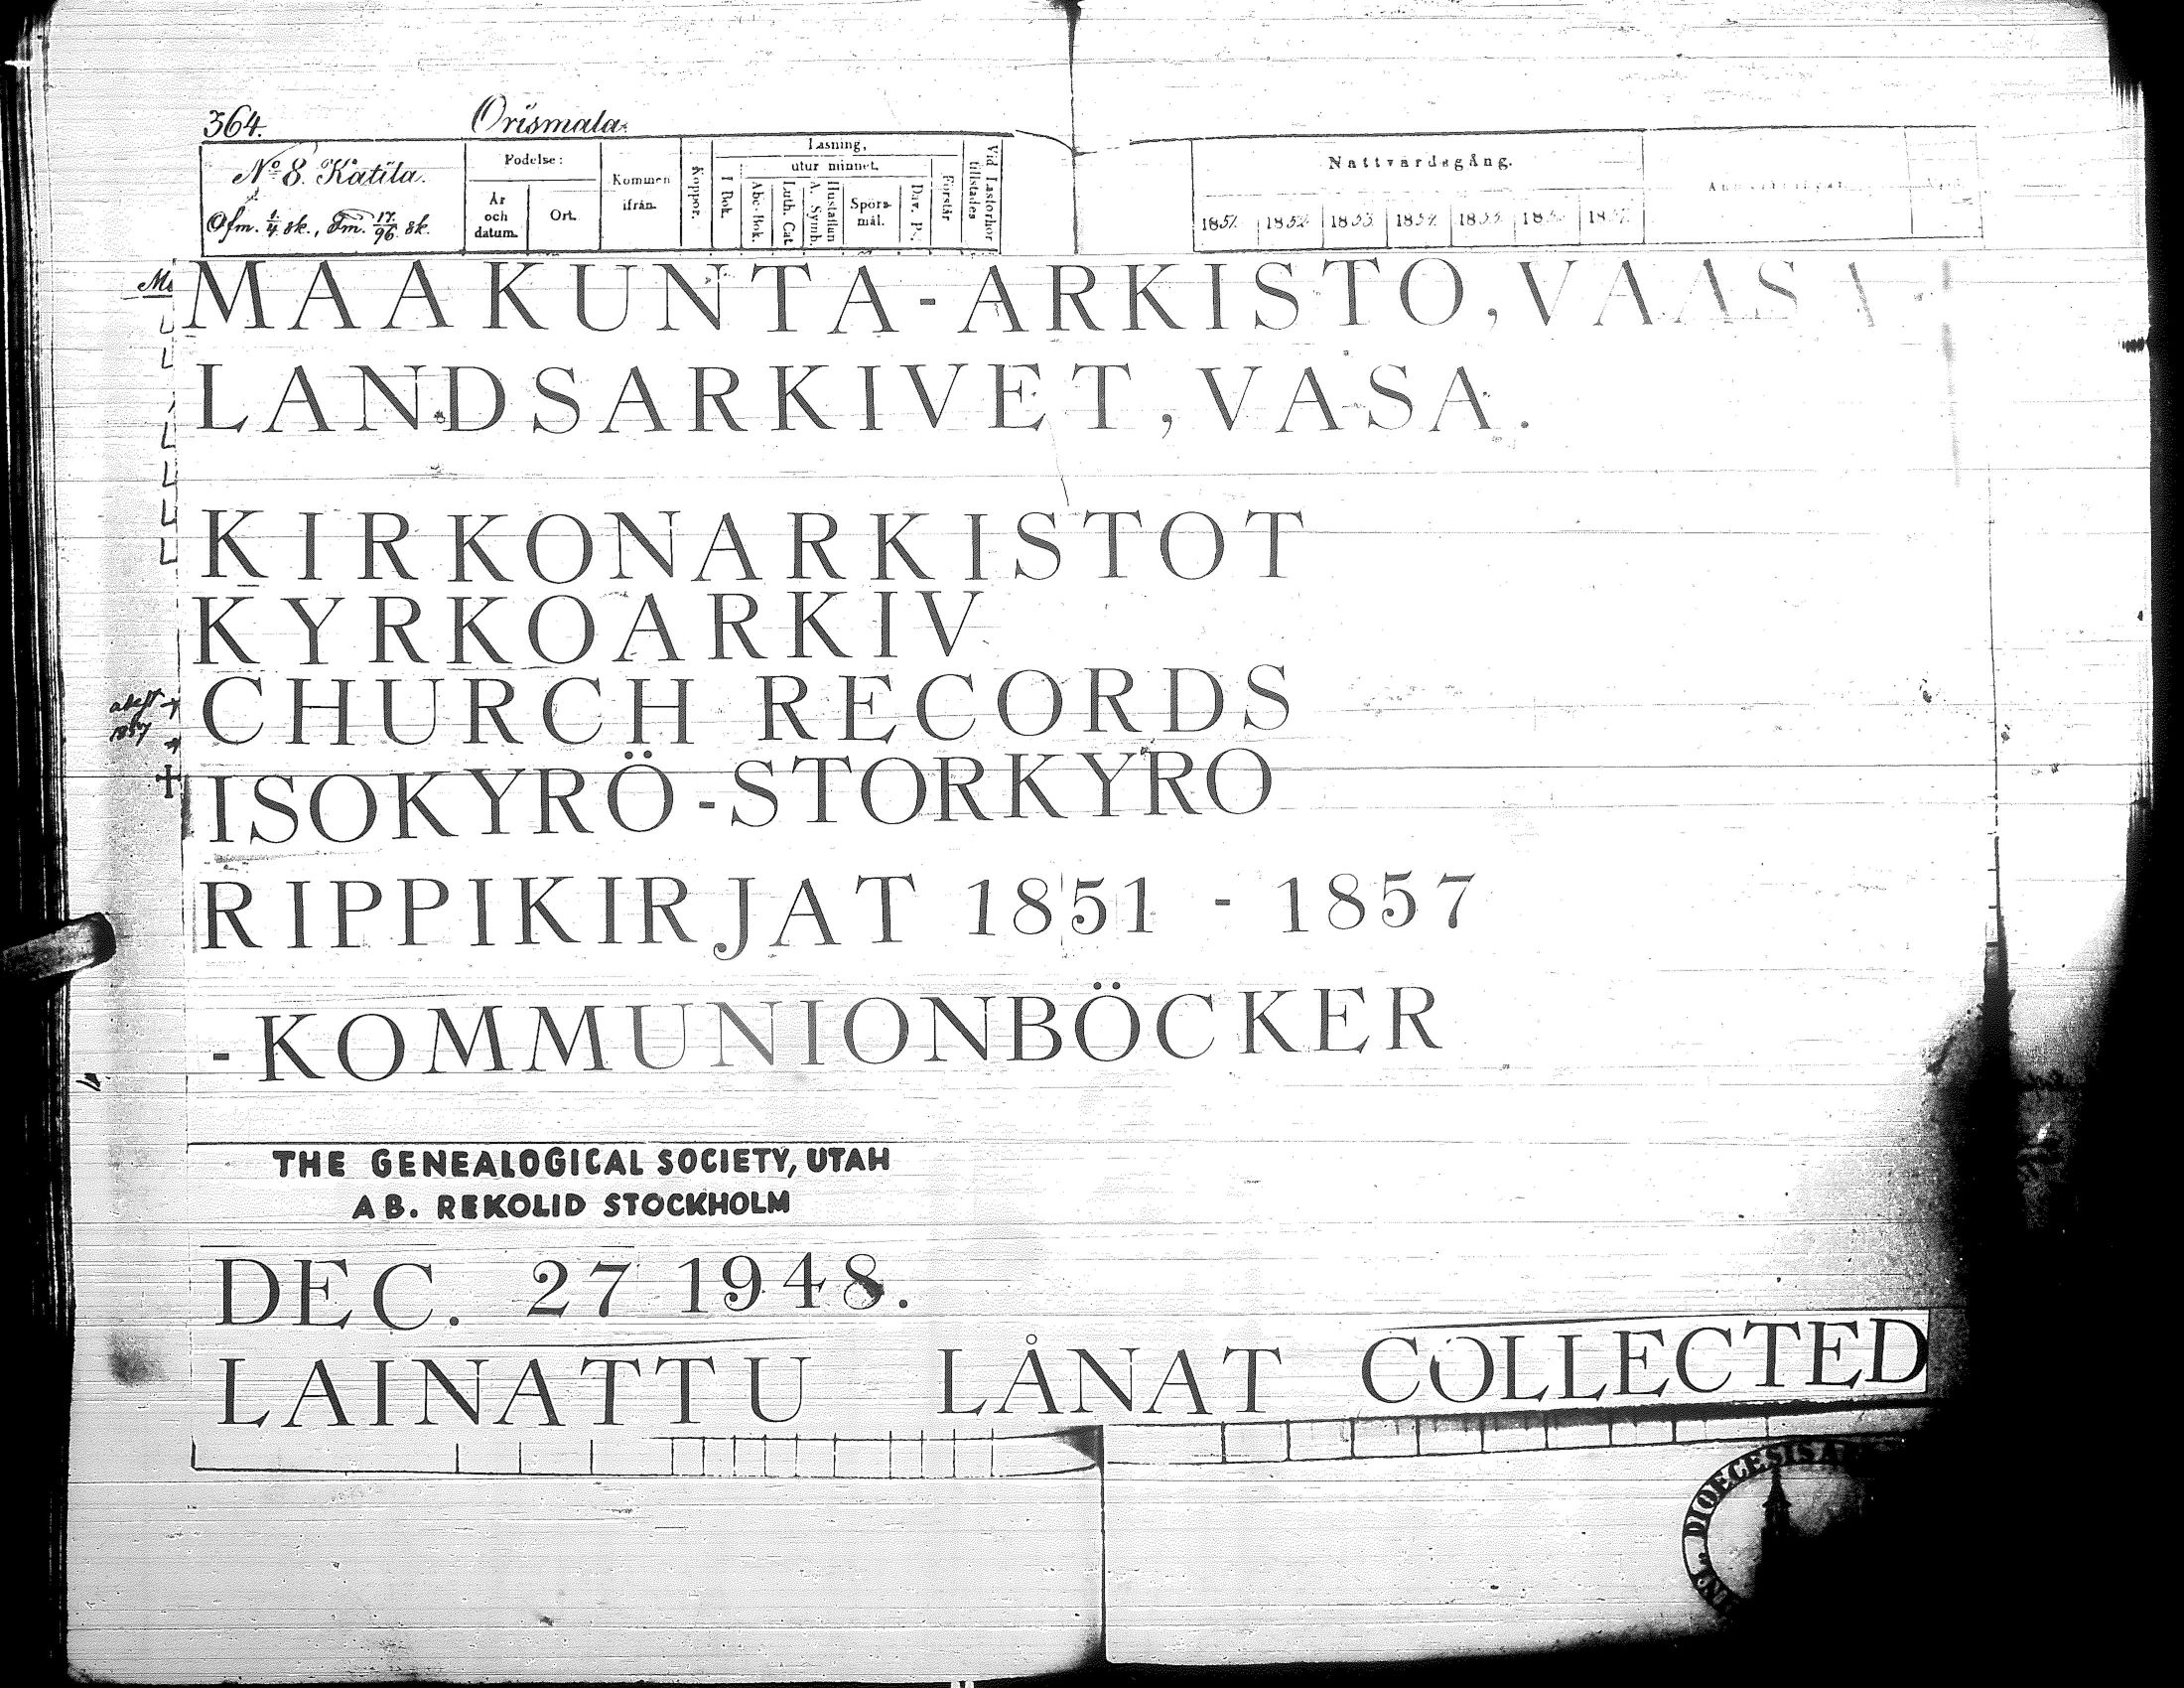 364. Orismala.
No 8. Katila.
Ofm. 1/4 sk., Fm. 17/96 sk.
Födelse:
År och datum.
Ort.
Kommen ifrån.
Koppor.
Läsning,
utur minnet.
I Bok.
Abc-Bok.
Luth. Cat.
Hustaflan A. Symb.
Spörs-mål.
Dav. Ps.
Förstår
Vid Läsförhör tillstädes
Nattvardsgång.
1851. 1852. 1853. 1854. 1855. 185 1857.
MAAKUNTA-ARKISTO, VAASA
LANDSARKIVET, VASA.
KIRKONARKISTOT
KYRKOARKIV
CHURCH RECORDS
ISOKYRÖ-STORKYRO
RIPPIKIRJAT 1851 - 1857
-KOMMUNIONBÖCKER
THE GENEALOGICAL SOCIETY, UTAH
AB. REKOLID STOCKHOLM
DEC. 27 1948.
LAINATTU LÅNAT COLLECTED
DIOECESIS